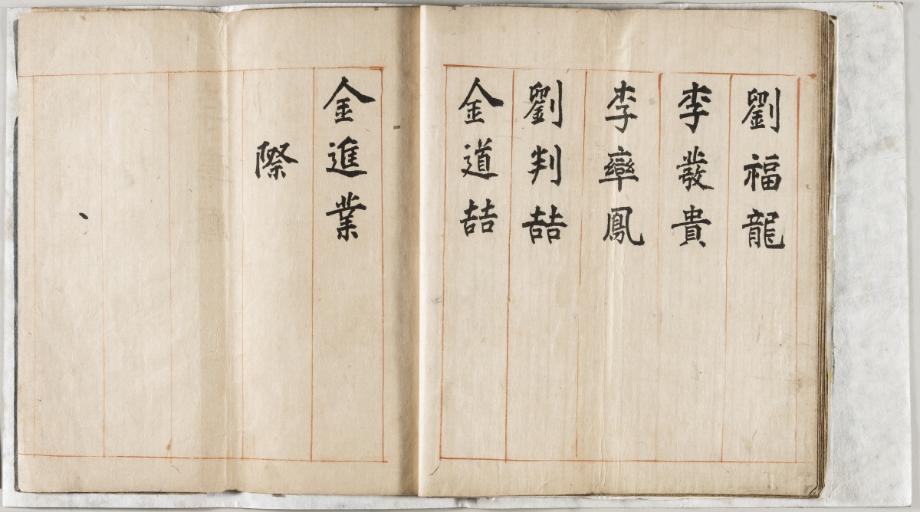 劉福龍
李發貴
李鳳
劉判喆
金道喆
金進業
際